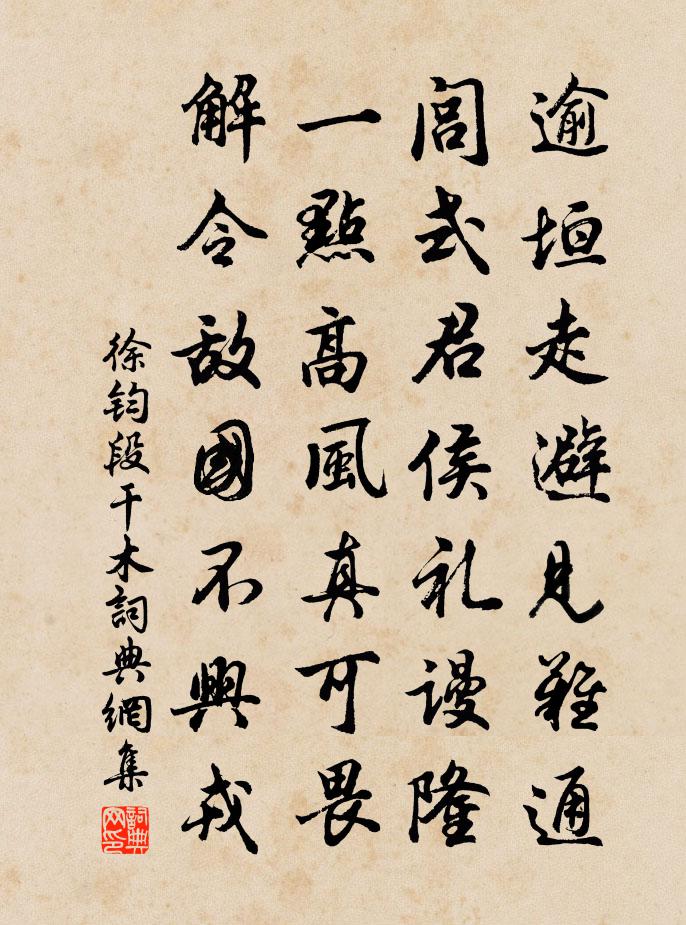 逾垣走避見難通
閭式君侯礼謾隆
一點高風真可畏
解令敌國不興戎
徐鈞段干木詞典網集
詞典网印